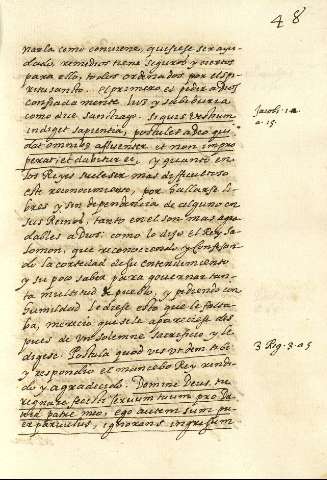 48
narla como conviene, quisiese ser ayu-
dado, remedios tiene seguros y ciertos
para ello, todos ordenados por el Spi-
ritu santo. el primero es pedir a Dios
confiadamente luz y sabiduria
como dize Santiago. si quis vestrum
indiget sapientia, postulet a deo qui
dat omnibus affluenter et non impro
perat, et dabitur ei, y quanto en
los Reyes suele ser mas dificultoso
este reconocimiento, por hallarse li-
bres y sin dependencia de alguno en
sus Reinos, tanto en el son mas agra-
dables a Dios: como lo dijo el Rey Sa-
lomon, que reconociendo y confesan-
do la cortedad de su entendimiento
y su poco saber para governar tan-
ta multitud de pueblo, y pidiendo con
humildad le diese esto que le falta-
ba, merecio que se le apareciese des
pues de un solemne sacrificio y le
digese Postula quod vis ut dem tibi
y respondio el mancebo Rey rendi-
do y agradecido. Domine Deus, tu
regnare fecisti servum tuum pro Da-
vid patre meo, ego autem sum pu-
er parvulus, ignorans ingressum
Jacobi. 1.
a. 15.
3 Reg. 3. a 5